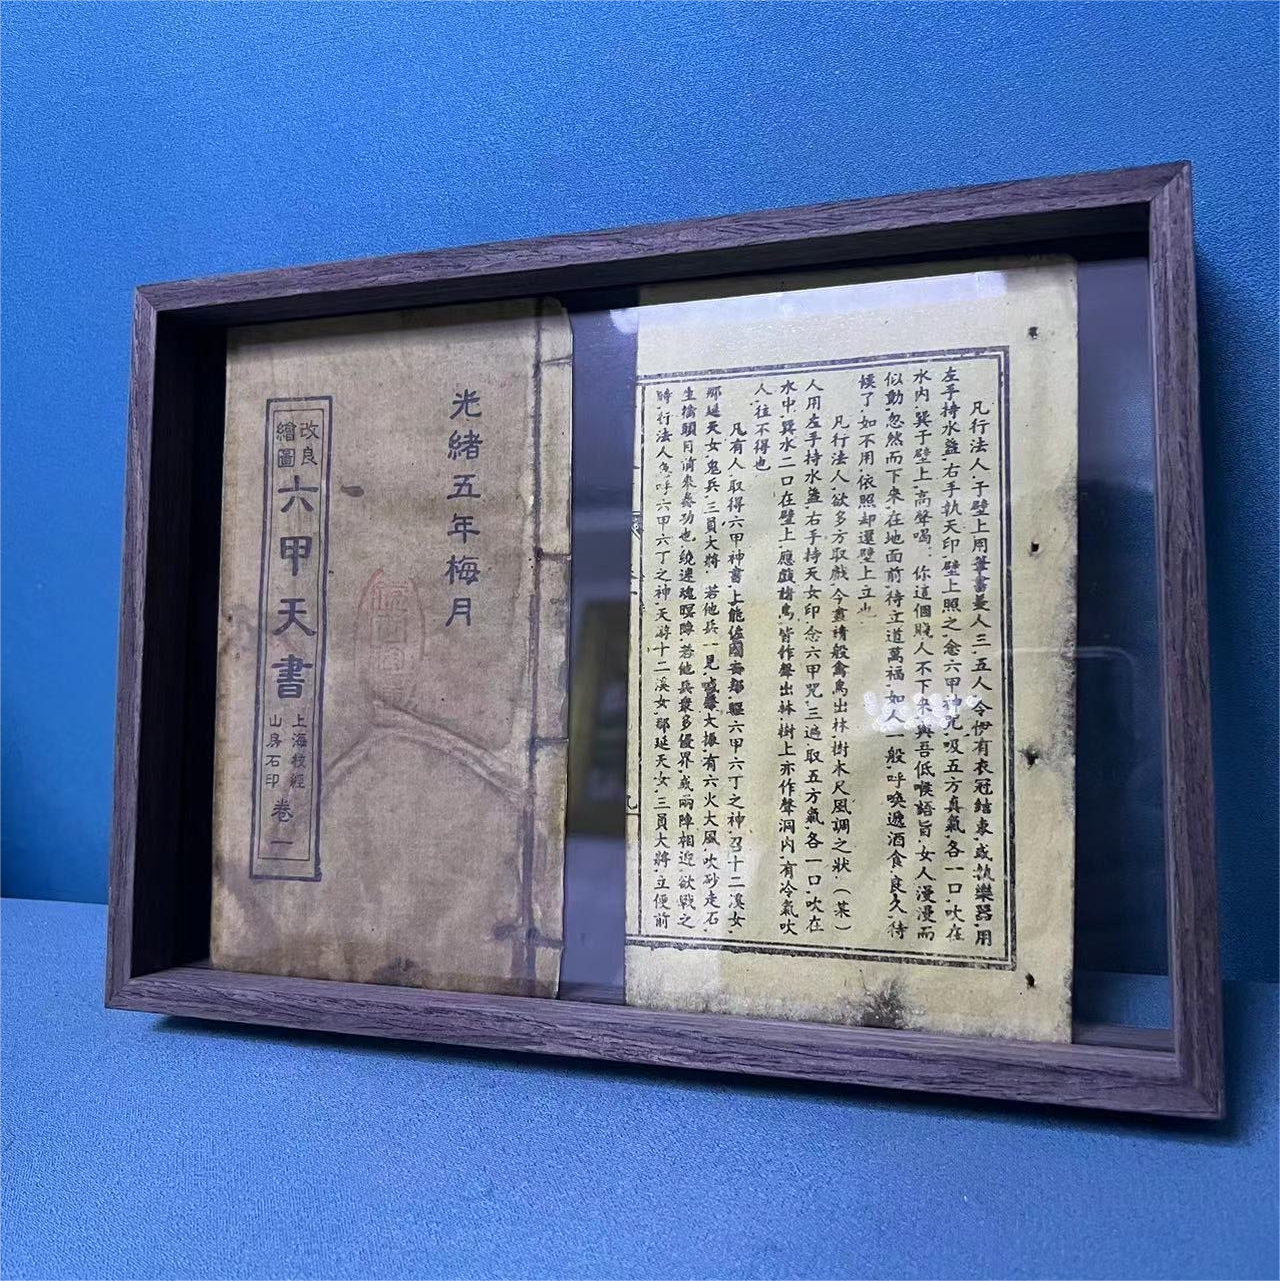 光緒五年梅月
改良
繪圖
六甲天書
上海校經
山房石印
卷一
凡行法人于壁上用筆畫美人三五人令伊有衣冠結束或執樂器用
左手持水盞右手執天印壁上照之念六甲神咒吸五方真氣各一口吹在
水內巽于壁上高聲喝你這個賤人不下來與吾低喉語旨女人漫漫而
似動忽然而下來在地面前待立道萬福如人一般呼喚遞酒食良久待
候了如不用依照却還壁上立也
凡行法人欲多方取戲令畫諸般禽鳥出林樹木尺風調之狀（某）
人用左手持水盞右手持天女印念六甲咒三遍取五方氣各一口吹在
水中巽水二口在壁上應戲諸鳥皆作聲出林樹上亦作聲洞內有冷氣吹
人往不得也
凡有人取得六甲神書上能佐國安邦驅六甲六丁之神召十二溪女
那延天女鬼兵三員大將若他兵一見喊聲大振有六火大風吹砂走石
生擒頭目前來奏功也繞速魂暝陣若他兵衆多侵界或兩陣相迎欲戰之
時行法人急呼六甲六丁之神天將十二溪女那延天女三員大將立便前